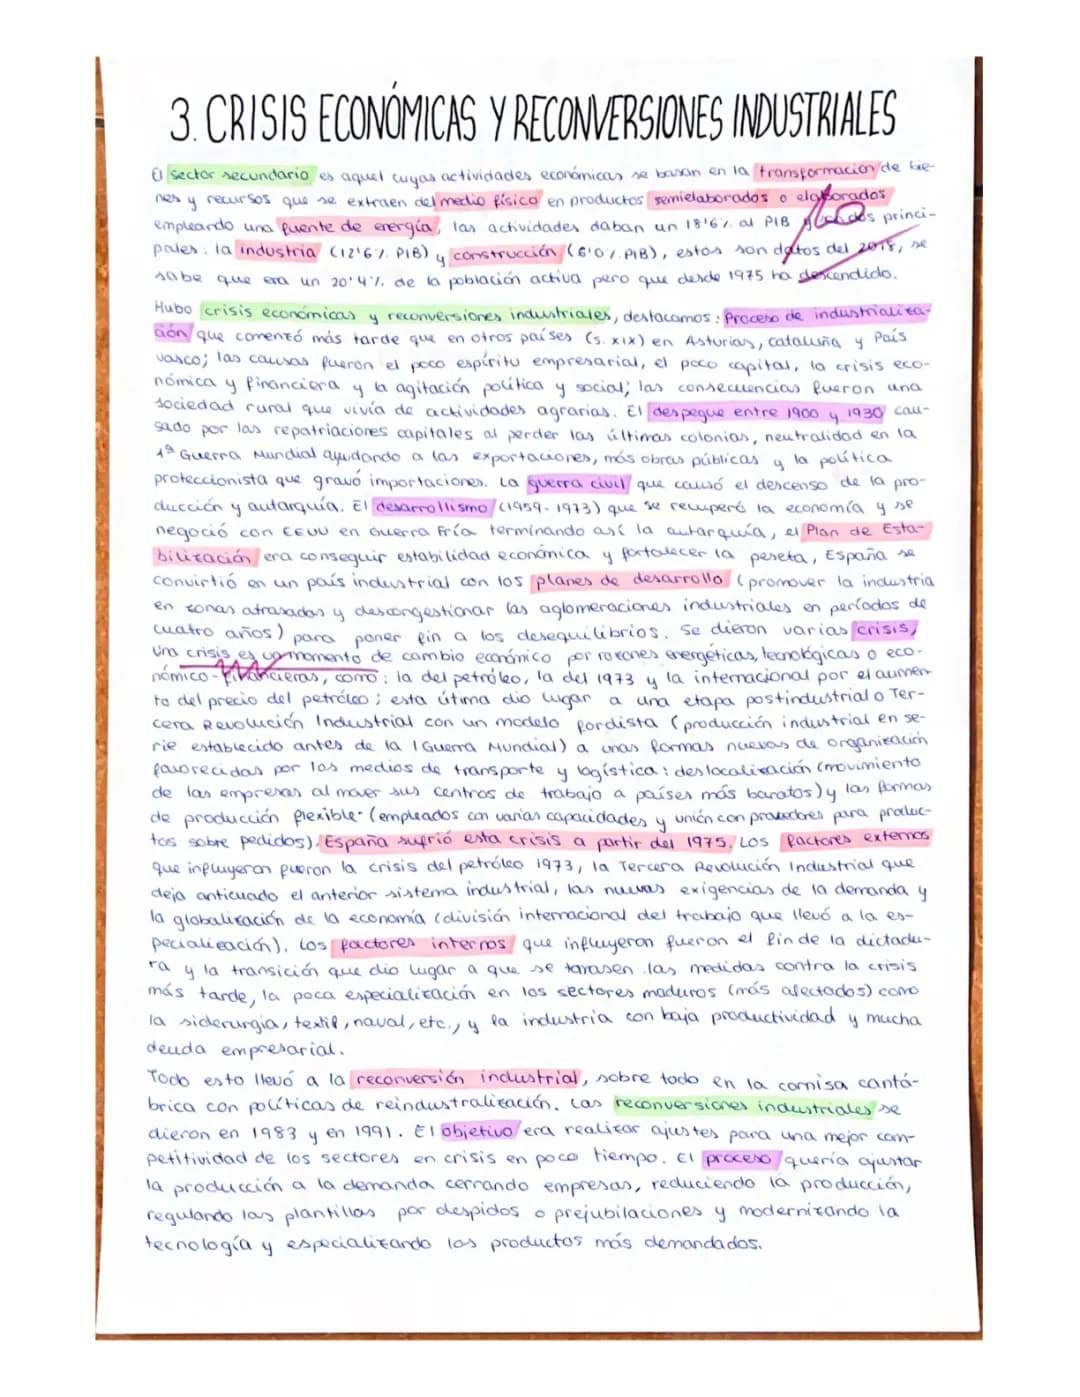 3. CRISIS ECONÓMICAS Y RECONVERSIONES INDUSTRIALES
El sector secundario es aquel cuyas actividades económicas se basan en la transformación de bie-
nes y recursos que se extraen del medio físico en productos semielaborados o elaborados
empleando una fuente de energía, las actividades daban un 18'6% al PIB y princi-
pales: la industria (12'6% PIB) y construcción (6'0% PIB), estos son datos del 2018, se
sabe que era un 20'4% de la población activa pero que desde 1975 ha descendido.
Hubo crisis económicas y reconversiones industriales, destacamos: Proceso de industrializa-
ción que comenzó más tarde que en otros países (s. XIX) en Asturias, Cataluña y País
Vasco; las causas fueron el poco espíritu empresarial, el poco capital, la crisis eco-
nómica y financiera y la agitación política y social; las consecuencias fueron una
sociedad rural que vivía de actividades agrarias. El despegue entre 1900 y 1930 cau-
sado por las repatriaciones capitales al perder las últimas colonias, neutralidad en la
1ª Guerra Mundial ayudando a las exportaciones, más obras públicas y la política
proteccionista que gravó importaciones. La guerra civil que causó el descenso de la pro-
ducción y autarquía. El desarrollismo (1959-1973) que se recuperó la economía y se
negoció con EEUU en Guerra Fría terminando así la autarquía, el Plan de Esta-
bilización era conseguir estabilidad económica y fortalecer la peseta, España se
convirtió en un país industrial con los planes de desarrollo (promover la industria
en zonas atrasadas y descongestionar las aglomeraciones industriales en períodos de
cuatro años) para poner fin a los desequilibrios. Se dieron varias crisis,
Una crisis es un momento de cambio económico por razones energéticas, tecnológicas o eco-
nómico-financieras, como: la del petróleo, la del 1973 y la internacional por el aumen-
to del precio del petróleo; esta última dio lugar a una etapa postindustrial o Ter-
cera Revolución Industrial con un modelo fordista (producción industrial en se-
rie establecido antes de la I Guerra Mundial) a unas formas nuevas de organización
favorecidas por los medios de transporte y logística: deslocalización (movimiento
de las empresas al mover sus centros de trabajo a países más baratos) y las formas
de producción flexible (empleados con varias capacidades y unión con proveedores para produc-
tos sobre pedidos). España sufrió esta crisis a partir del 1975. Los factores externos
que influyeron fueron la crisis del petróleo 1973, la Tercera Revolución Industrial que
deja anticuado el anterior sistema industrial, las nuevas exigencias de la demanda y
la globalización de la economía (división internacional del trabajo que llevó a la es-
pecialización). Los factores internos que influyeron fueron el fin de la dictadu-
ra y la transición que dio lugar a que se tomasen las medidas contra la crisis
más tarde, la poca especialización en los sectores maduros (más afectados) como
la siderurgia, textil, naval, etc., y la industria con baja productividad y mucha
deuda empresarial.
Todo esto llevó a la reconversión industrial, sobre todo en la cornisa cantá-
brica con políticas de reindustralización. Las reconversiones industriales se
dieron en 1983 y en 1991. El objetivo era realizar ajustes para una mejor com-
petitividad de los sectores en crisis en poco tiempo. El proceso quería ajustar
la producción a la demanda cerrando empresas, reduciendo la producción,
regulando las plantillas por despidos o prejubilaciones y modernizando la
tecnología y especializando los productos más demandados.